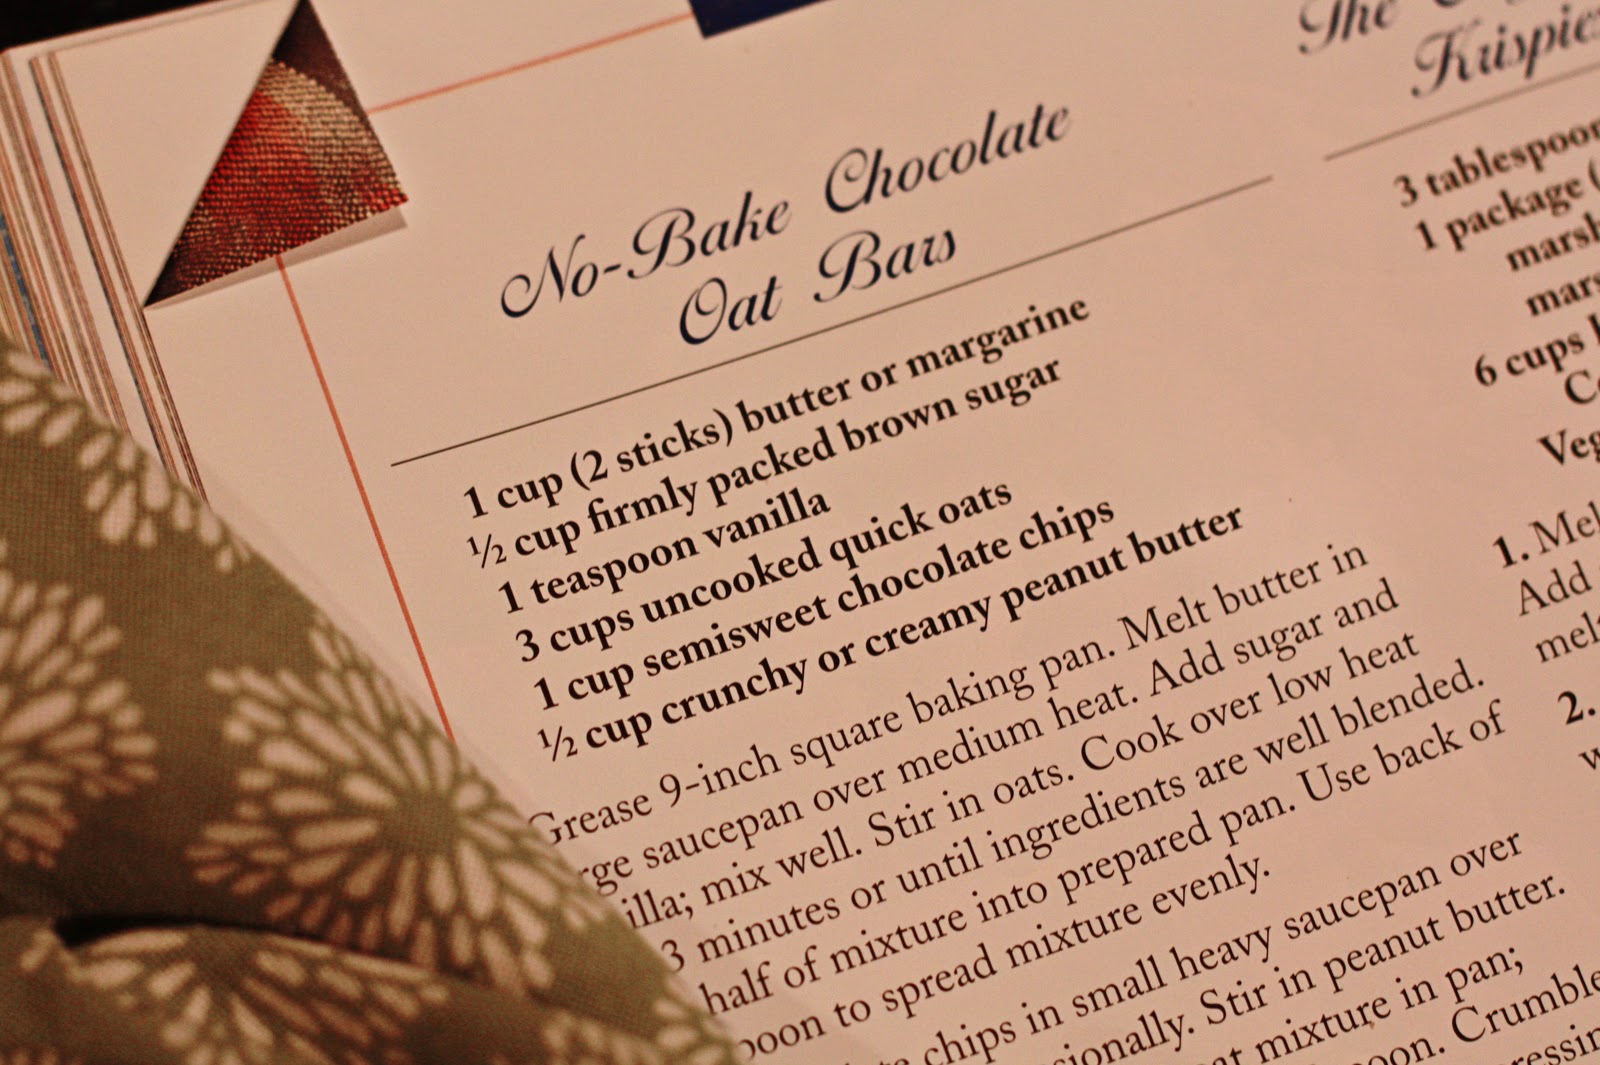 No-Bake Chocolate
Oat Bars
1 cup (2 sticks) butter or margarine
½ cup firmly packed brown sugar
1 teaspoon vanilla
3 cups uncooked quick oats
1 cup semisweet chocolate chips
½ cup crunchy or creamy peanut butter
Grease 9-inch square baking pan. Melt butter in
rge saucepan over medium heat. Add sugar and
illa; mix well. Stir in oats. Cook over low heat
3 minutes or until ingredients are well blended.
half of mixture into prepared pan. Use back of
poon to spread mixture evenly.
chips in small heavy saucepan over
sionally. Stir in peanut butter.
at mixture in pan;
oon. Crumble
ressin
The
Krispies
3 tablespoon
1 package (
marsh
mars
6 cups
Co
Veg
1. Mel
Add
melt
2.
w